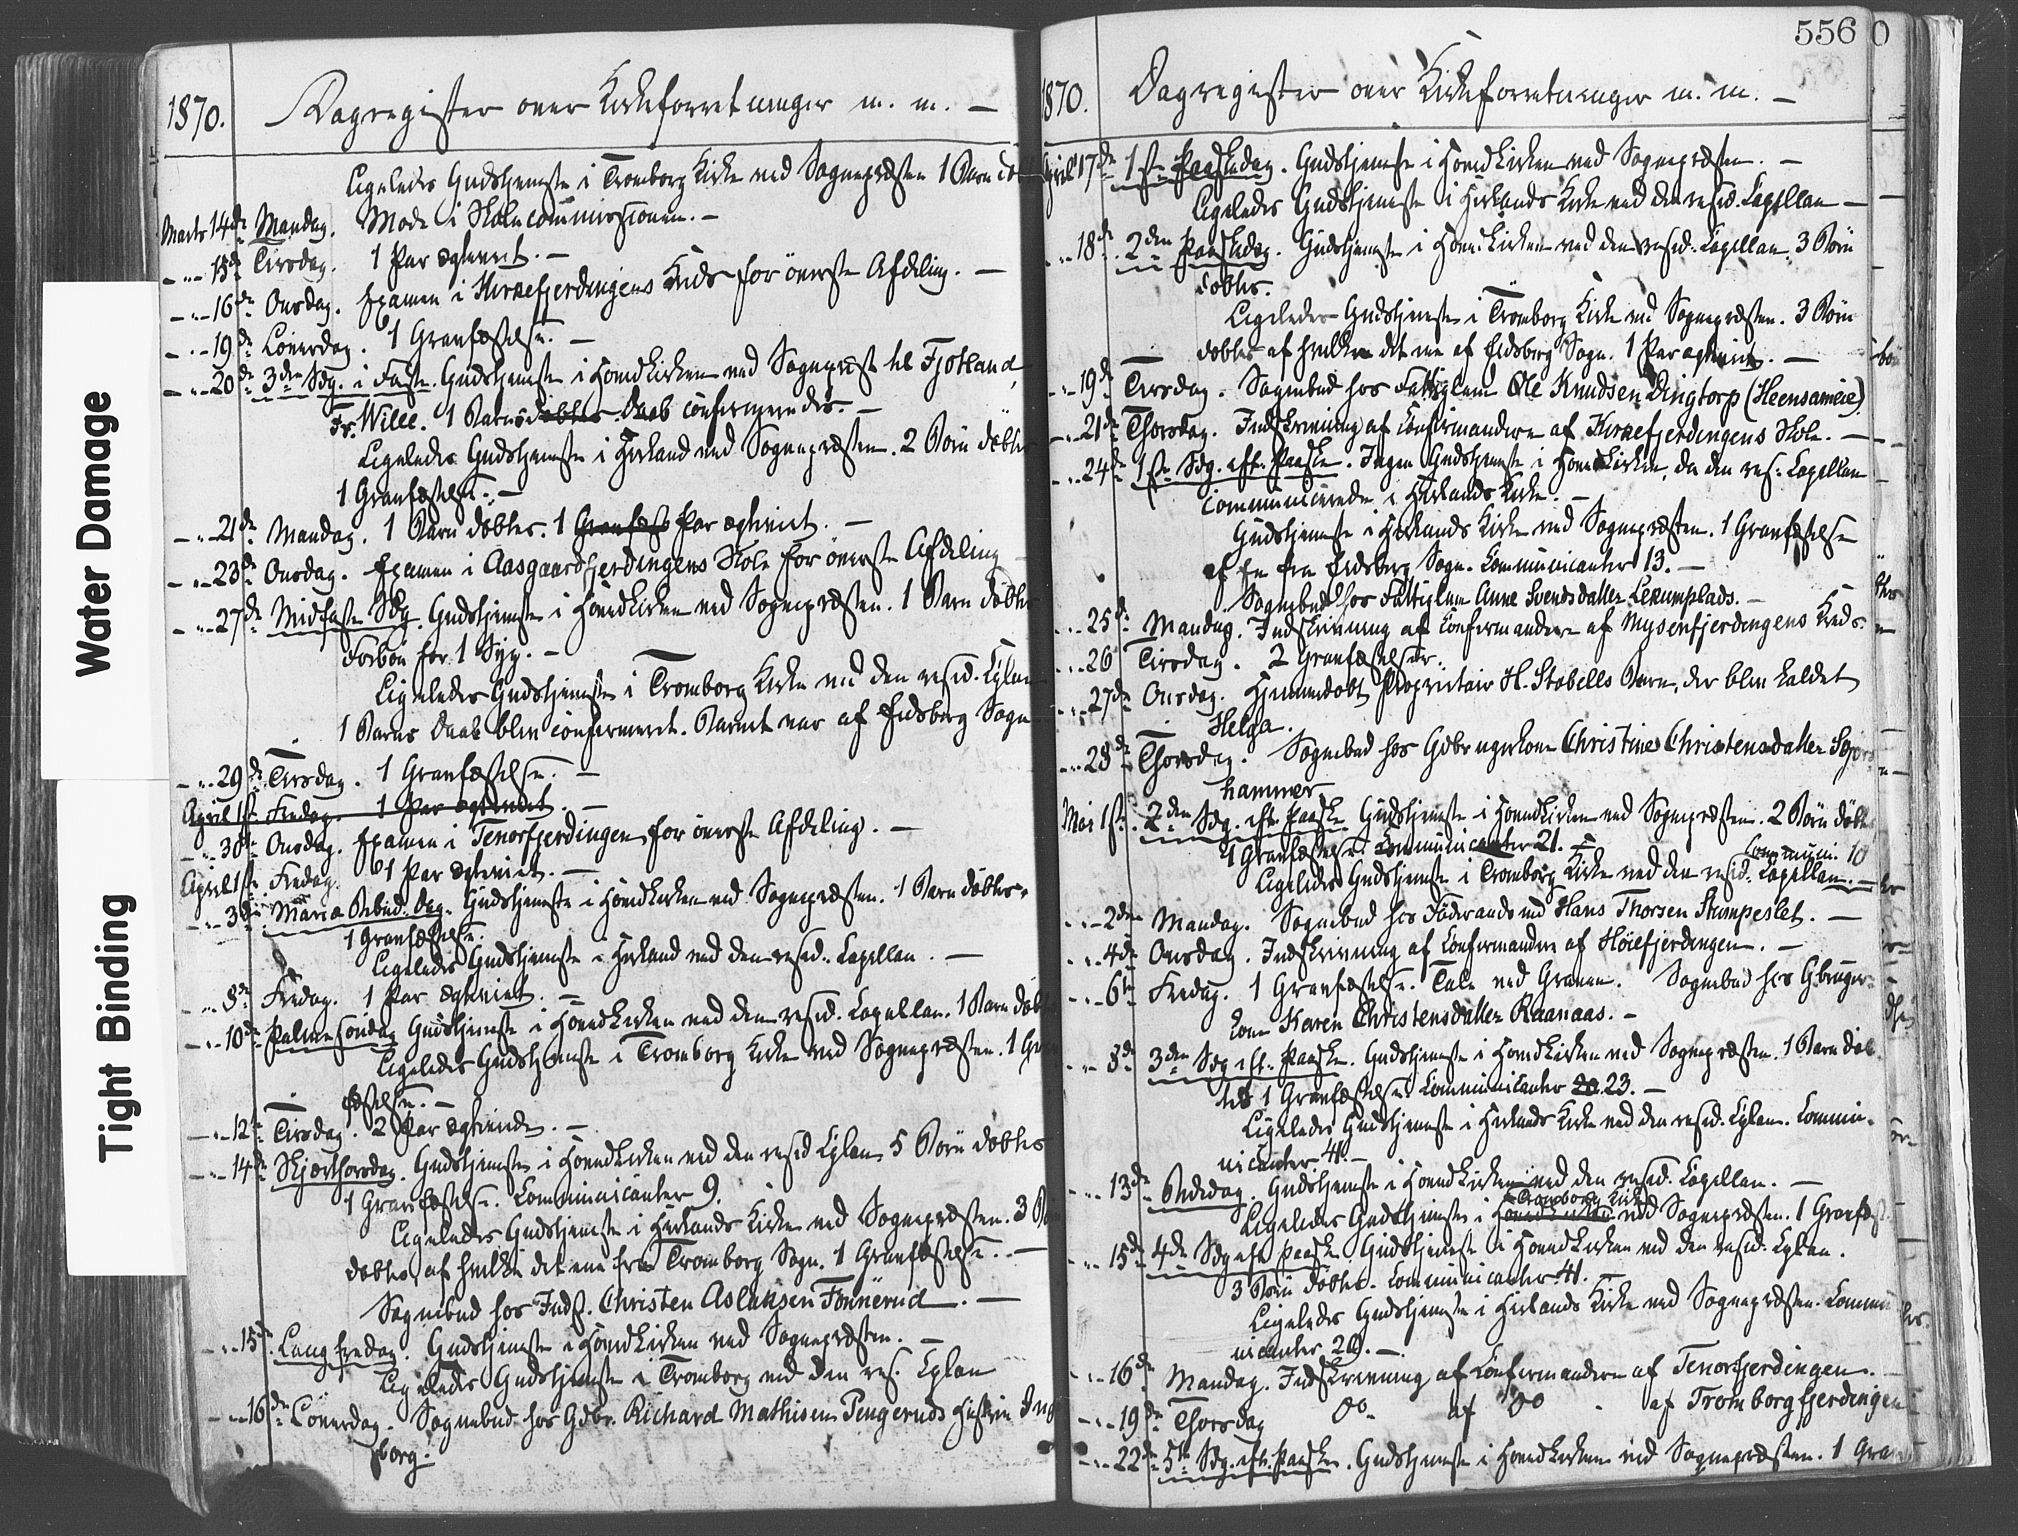 Water Damage
Tight Binding
1870. Dagregister over Kirkeforretninger m. m. —
Ligeledes Gudstjeneste i Tromborg Kirke ved Sognepræsten 1 Barn
Marts 14de Mandag. Møde i Skolecommissionen. —
— „ — 15de Tirsdag. 1 Par ægteviet. —
— „ — 16de Onsdag. Examen i Huraefjerdingens Kreds for øverste Afdeling. —
— „ — 19de Löverdag. 1 Gravfæstelse. —
— „ — 20de 3die Sdg. i Faste. Gudstjeneste i Hovedkirken ved Sognepræst til Fjotland
Fr. Wille. 1 Barns Daab confirmeredes. —
Ligeledes Gudstjeneste i Herland ved Sognepræsten. 2 Börn döbtes
1 Gravfæstelse. —
— „ — 21de Mandag. 1 Barn döbtes. 1 Gravfæst Par ægteviet. —
— „ — 23de Onsdag. Examen i Aasgaardfjerdingens Skole for øverste Afdeling —
— „ — 27de Midfaste Sdg. Gudstjeneste i Hovedkirken ved Sognepræsten. 1 Barn döbtes
Forbön for 1 Syg. —
Ligeledes Gudstjeneste i Tromborg Kirke ved den resid. Cplan
1 Barns Daab blev confirmeret. Barnet var af Eidsberg Sogn
— „ — 29de Tirsdag. 1 Gravfæstelse. —
April 1ste Fredag. 1 Par ægteviet. —
— „ — 30te Onsdag. Examen i Tenorfjerdingen for øverste Afdeling. —
April 1ste Fredag. 1 Par ægteviet. —
— „ — 3die Maria Bebud. Dag. Gudstjeneste i Hovedkirken ved Sognepræsten. 1 Barn döbtes.
1 Gravfæstelse.
Ligeledes Gudstjeneste i Herland ved den resid. Capellan. —
— „ — 8de Fredag. 1 Par ægteviet. —
— „ — 10de Palmesöndag Gudstjeneste i Hovedkirken ved den resid. Capellan. 1 Barn döbt
Ligeledes Gudstjeneste i Tromborg Kirke ved Sognepræsten. 1 Grav
fæstelse. —
— „ — 12te Tirsdag. 2 Par ægteviede. —
— „ — 14de Skjærthorsdag. Gudstjeneste i Hovedkirken ved den resid Cplan 5 Börn döbtes
1 Gravfæstelse. Communicanter 9.
Ligeledes Gudstjeneste i Herlands Kirke ved Sognepræsten. 3 Börn
döbtes, af hvilke det ene fra Tromborg Sogn. 1 Gravfæstelse. —
Sognebud hos Inds. Christen Aslaksen Fönnerud. —
— „ — 15de Langfredag. Gudstjeneste i Hovedkirken ved Sognepræsten. —
Ligeledes Gudstjeneste i Tromborg ved den res. Cplan
— „ — 16de Löverdag. Sognebud hos Gdbr. Richard Mathisen Tengeruds Hustru Inge
borg.
556
1870. Dagregister over Kirkeforretninger m. m. —
April 17de 1ste Paaskedag. Gudstjeneste i Hovedkirken ved Sognepræsten. —
Ligeledes Gudstjeneste i Herlands Kirke ved den resid. Capellan —
— „ — 18de 2den Paaskedag. Gudstjeneste i Hovedkirken ved den resid. Capellan. 3 Börn
döbtes.
Ligeledes Gudstjeneste i Tromborg Kirke ved Sognepræsten. 3 Börn
döbtes af hvilke det ene af Eidsberg Sogn. 1 Par ægteviet. —
— „ — 19de Tirsdag. Sognebud hos Fattiglem Ole Knudsen Dingtorp (Heensameie)
— „ — 21de Thorsdag. Indskrivning af Confirmandere af Huraefjerdingens Skole. —
— „ — 24de 1ste Sdg. eft. Paaske. Ingen Gudstjeneste i Hovedkirken, da den res. Capellan
communicerede i Herlands Kirke. —
Gudstjeneste i Herlands Kirke ved Sognepræsten. 1 Gravfæstelse
af En fra Eidsberg Sogn. Communicanter 13. —
Sognebud hos Fattiglem Anne Svendsdatter Lexumplads. —
— „ — 25de Mandag. Indskrivning af Confirmandere af Mysenfjerdingens Kreds.
— „ — 26 Tirsdag. 2 Gravfæstelser.
— „ — 27de Onsdag. Hjemmedöbt Proprietair H. Stabells Barn, der blev kaldet
Helga.
— „ — 28de Thorsdag. Sognebud hos Gdbrugerkone Christine Christensdatter
hammer
Mai 1ste 2den Sdg. eft. Paaske Gudstjeneste i Hovedkirken ved Sognepræsten. 2 Börn döbtes
1 Gravfæstelse. Communicanter 21. — Commun. 10
Ligeledes Gudstjeneste i Tromborg Kirke ved den resid. Capellan. —
— „ — 2den Mandag. Sognebud hos Föderaadsmd Hans Thorsen Stumpeslet. —
— „ — 4de Onsdag. Indskrivning af Confirmandere af Höiefjerdingen. —
— „ — 6te Fredag. 1 Gravfæstelse. Tale ved Graven. Sognebud hos Gbruger-
kone Karen Christensdatter Raanaas. —
— „ — 8de 3die Sdg eft. Paaske. Gudstjeneste i Hovedkirken ved Sognepræsten. 1 Barn döb
tes 1 Gravfæstelse. Communicanter 20. 23. —
Ligeledes Gudstjeneste i Herlands Kirke ved den resid. Cplan. Commu-
nicanter 41. —
— „ — 13de Bededag. Gudstjeneste i Hovedkirken ved den resid. Capellan. —
Tromborg Kirke
Ligeledes Gudstjeneste i Hovedkirken ved Sognepræsten. 1 Gravfæst
— „ — 15de 4de Sdg eft Paaske Gudstjeneste i Hovedkirken ved den resid. Cplan.
3 Börn döbtes. Communicanter 41. —
Ligeledes Gudstjeneste i Herlands Kirke ved Sognepræsten. Commu
nicanter 20. —
— „ — 16de Mandag. Indskrivning af Confirmandere af Tenorfjerdingen. —
— „ — 19de Thorsdag Do. af Do - af Tromborgfjerdingen
— „ — 22de 5te Sdg. eft. Paaske. Gudstjeneste i Hovedkirken ved Sognepræsten. 1 Grav